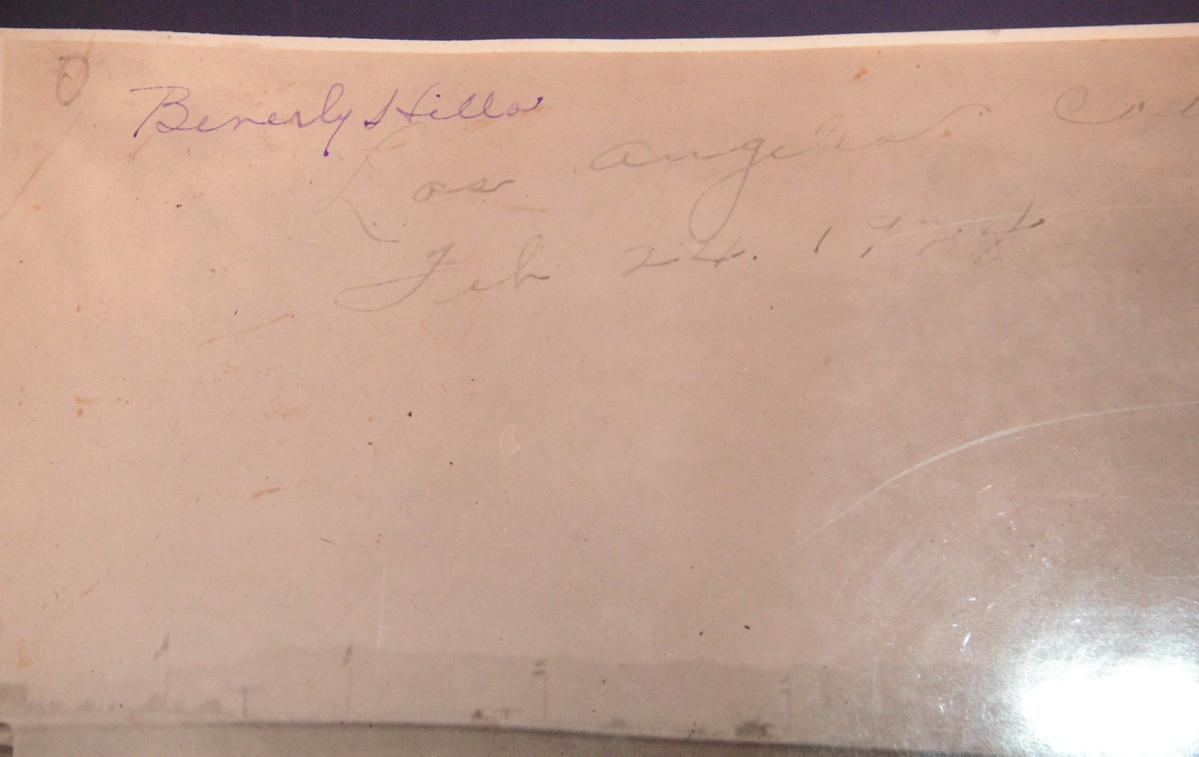 Beverly Hills
Los Angeles
Feb 24. 1924